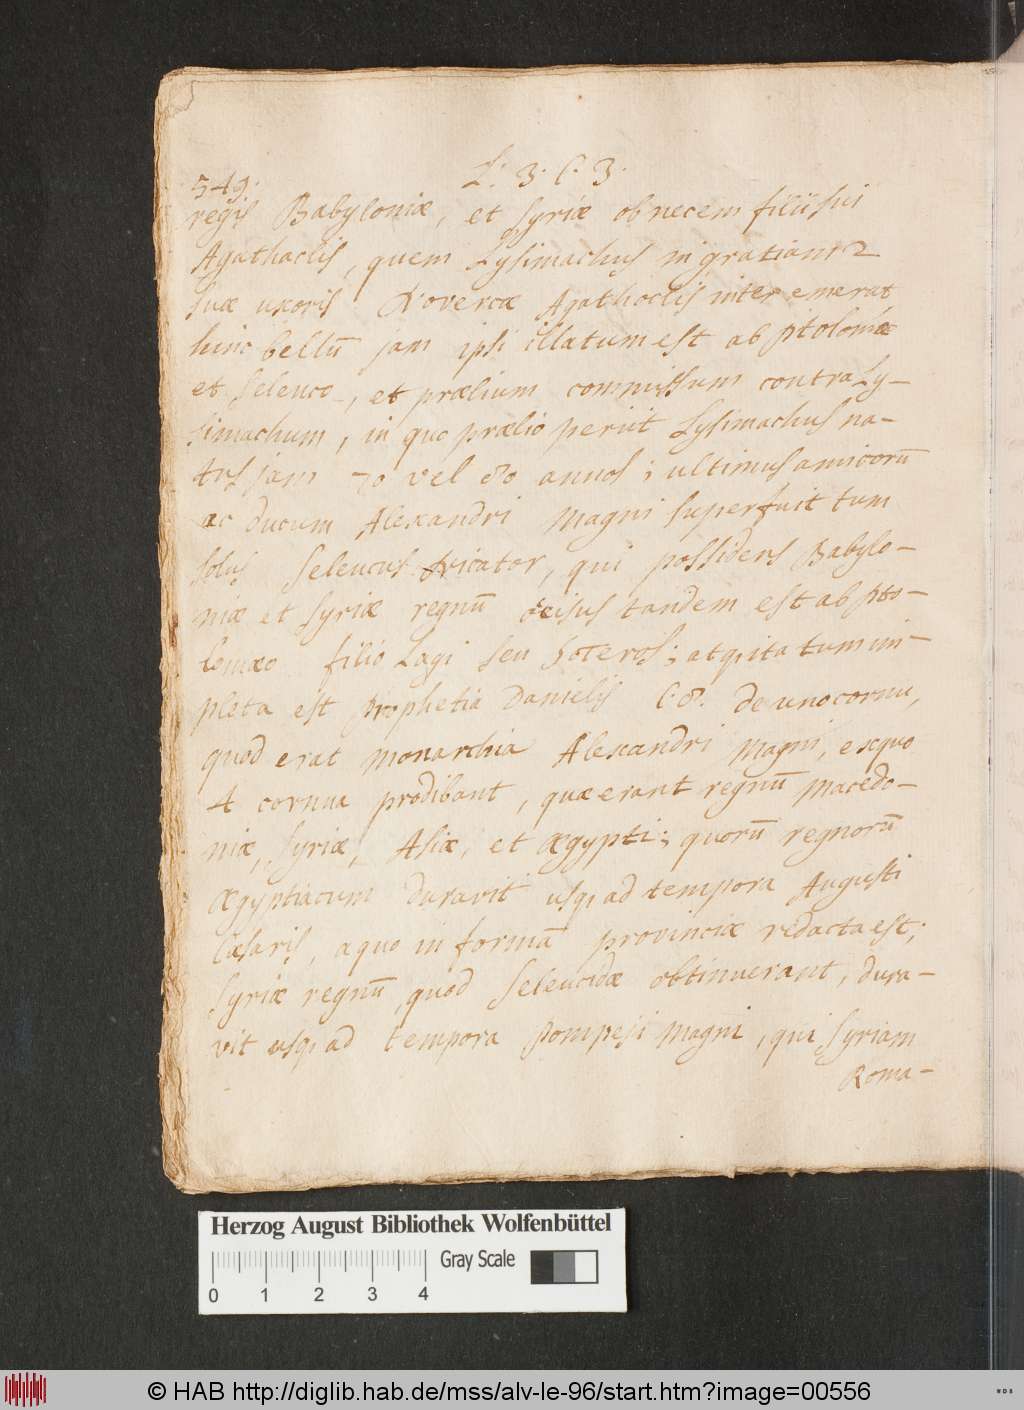 549. L. 3. C. 3.
regis Babyloniæ, et Syriæ ob necem filii sui
Agathaclis, quem Lysimachus in gratiam
suæ uxoris Novercæ Agathoclis interemerat
hinc bellū jam ipsi illatum est ab ptolomæo
et Seleuco, et prælium commissum contra Ly-
simachum, in quo prælio periit Lysimachus na-
tus jam 70 vel 80 annos; ultimus amicorū
ac ducum Alexandri Magni superfuit tum
solus Seleucus Nicator, qui possidens Babylo-
niæ et Syriæ regnū occisus tandem est ab pto-
lomæo filio Lagi seu Soteros; atq ita tum im-
pleta est prophetia Danielis C. 8. de uno cornu,
quod erat Monarchia Alexandri Magni, ex quo
4 cornua prodibant, quæ erant regnū Macedo-
niæ, Syriæ, Asiæ, et Ægypti; quorū regnorū
Ægyptiacum duravit usq ad tempora Augusti
Cæsaris, a quo in formā provinciæ redacta est;
Syriæ regnū quod Seleucidæ obtinuerant, dura-
vit usq ad tempora Pompeji Magni, qui Syriam
Roma-
Herzog August Bibliothek Wolfenbüttel
Gray Scale
0 1 2 3 4
© HAB http://diglib.hab.de/mss/alv-le-96/start.htm?image=00556